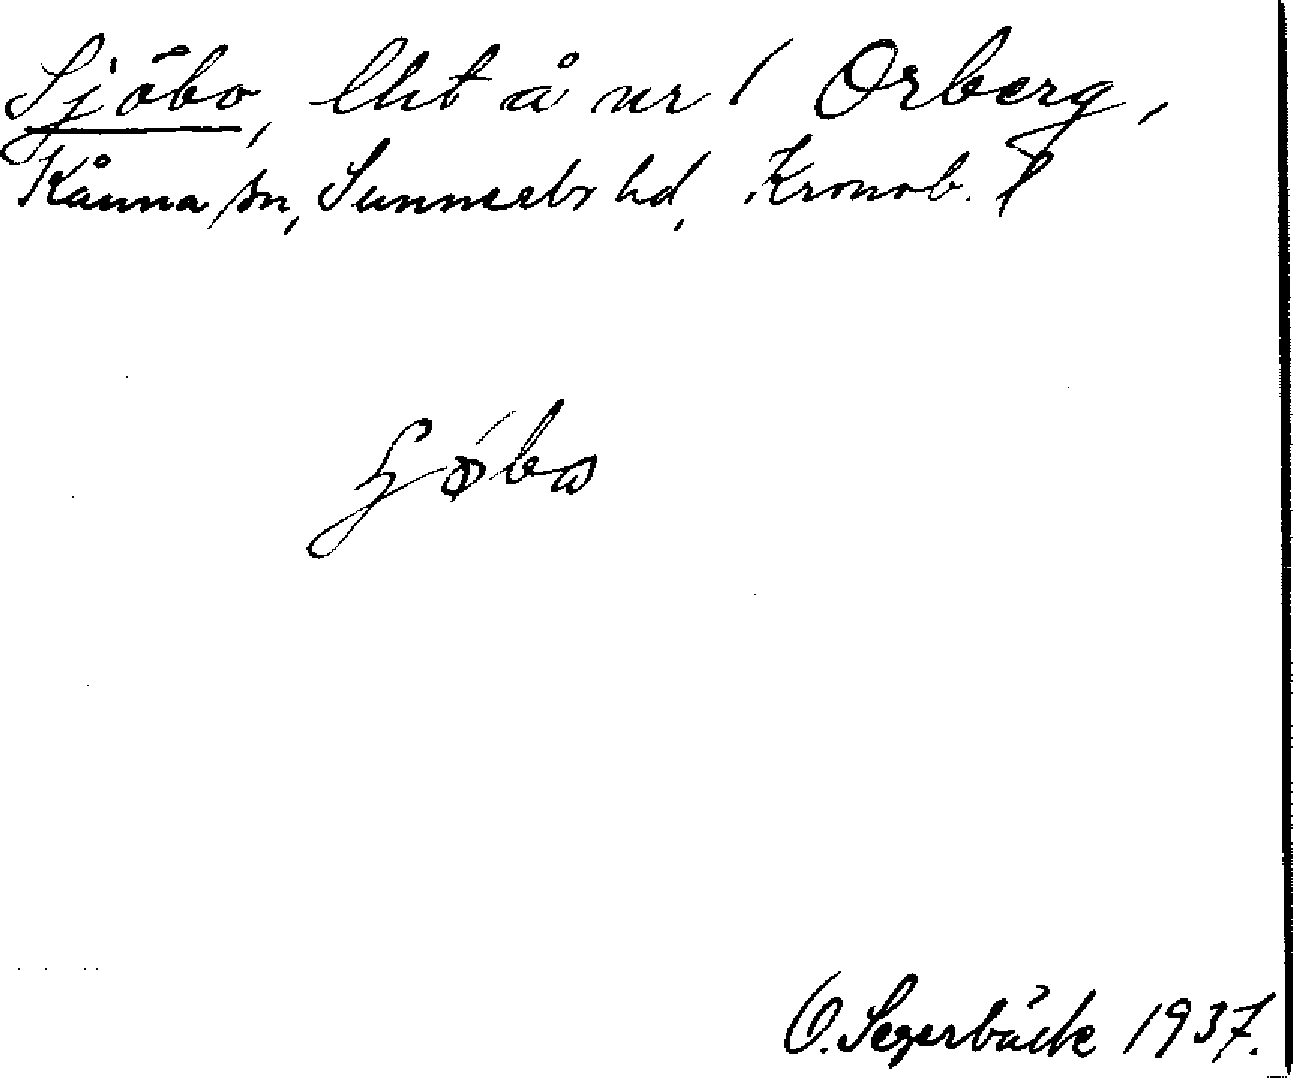 Sjöbo, lht å nr 1 Orberg,
Kånna sn, Sunnerbo hd, Kronob. l
O. Segerbäck 1937.